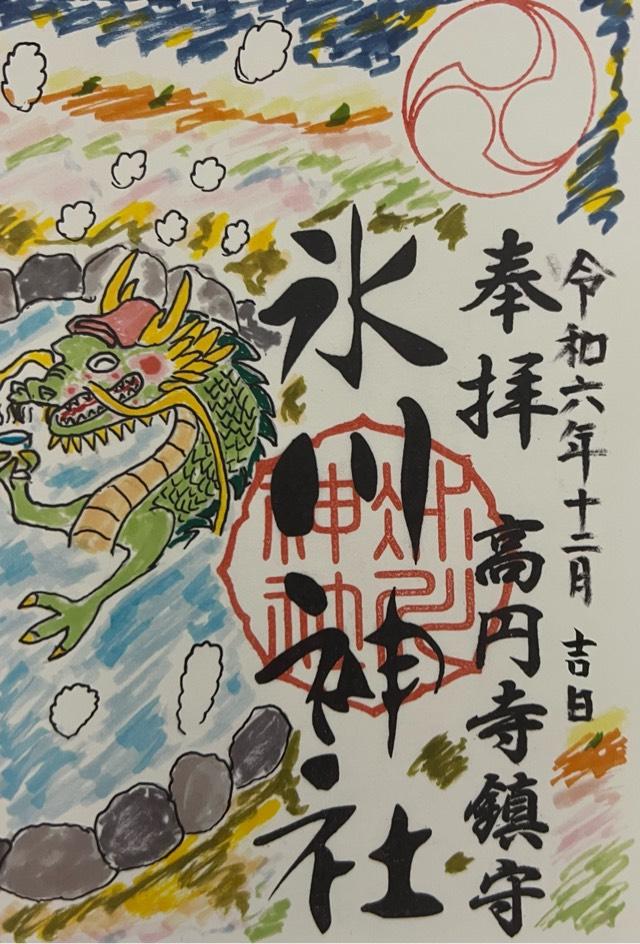 令和六年十二月 吉日
奉拝 高円寺鎮守
氷川神社